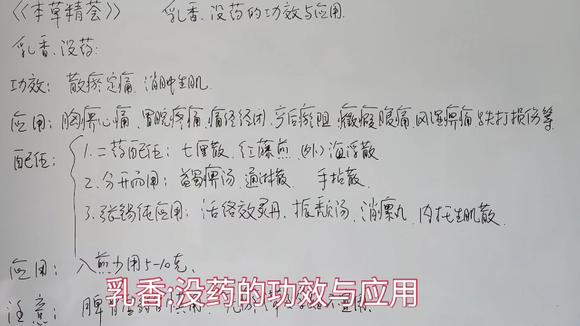 《《本草精荟》》 乳香、没药的功效与应用.
乳香、没药:
功效: 散瘀定痛、消肿生肌.
应用: 胸痹心痛、胃脘疼痛、痛经经闭、产后瘀阻、癥瘕腹痛、风湿痹痛、跌打损伤等.
配伍:
1. 二药配伍: 七厘散、红藤煎、(外)海浮散.
2. 分开而用: 蠲痹汤、通淋散、手拈散.
3. 张锡纯应用: 活络效灵丹、振颓汤、消瘰丸、内托生肌散.
应用: 入煎少用5-10克、
注意: 脾胃
乳香;没药的功效与应用